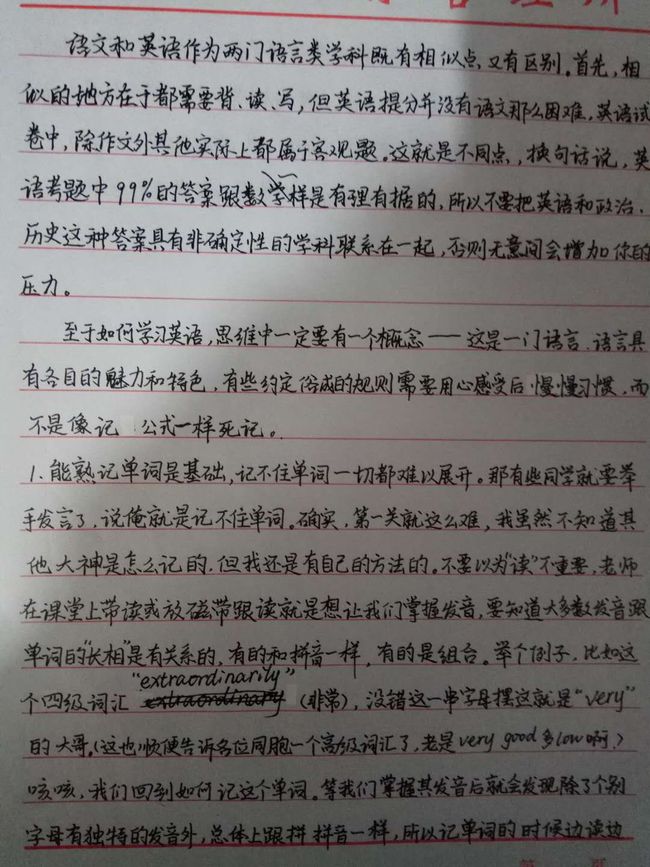 语文和英语作为两门语言类学科既有相似点,又有区别。首先,相
似的地方在于都需要背、读、写,但英语提分并没有语文那么困难,英语试
卷中,除作文外其他实际上都属于客观题。这就是不同点,换句话说,英
语考题中99%的答案跟数学一样是有理有据的,所以不要把英语和政治、
历史这种答案具有非确定性的学科联系在一起,否则无意间会增加你的
压力。
至于如何学习英语,思维中一定要有一个概念——这是一门语言.语言具
有各自的魅力和特色,有些约定俗成的规则需要用心感受后慢慢习惯,而
不是像记 公式一样死记。
1、能熟记单词是基础,记不住单词一切都难以展开。那有些同学就要举
手发言了,说俺就是记不住单词。确实,第一关就这么难,我虽然不知道其
他大神是怎么记的,但我还是有自己的方法的。不要以为"读"不重要,老师
在课堂上带读或放磁带跟读就是想让我们掌握发音,要知道大多数发音跟
单词的"长相"是有关系的,有的和拼音一样,有的是组合。举个例子,比如这
个四级词汇 "extraordinarily" (非常),没错这一串字母摆这就是"very"
的大哥。(这也顺便告诉各位同胞一个高级词汇了,老是very good多low啊。)
咳咳,我们回到如何记这个单词。等我们掌握其发音后就会发现除了个别
字母有独特的发音外,总体上跟拼 拼音一样,所以记单词的时候边读边